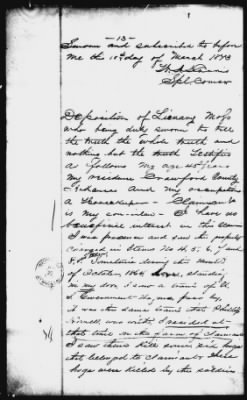 -13-
Sworn and subscribed to before
me this 10th day of March 1873
Spl. Comsr
Deposition of
who being duly sworn to tell
the truth the whole truth and
nothing but the truth Testifies
as follows My age is years
My residence Crawford County
Arkansas and my occupation
a Housekeeper - Claimant
is my son-in-law - I have no
beneficial interest in the claim
I was present and saw the property
charged in Items No 4, 5, 6, 7 and
Sometime during the month
of October 1864 standing
in my door, I saw a train of U.
S. Government pass by.
it was the same train that Phillip
was with, I resided at
that time on the farm of
I saw them kill some hogs
that belonged to Claimant These
hogs were killed by the soldiers